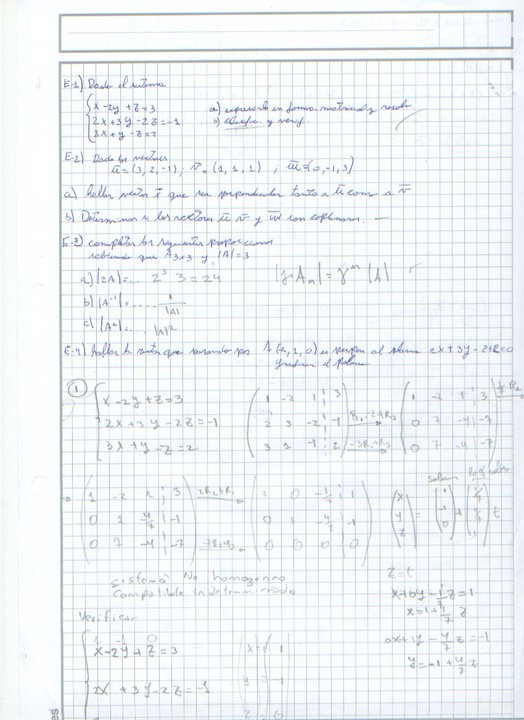 E-1) Dado el sistema
x - 2y + z = 3 a) expresarlo en forma matricial y resolver
2x + 3y - 2z = -1 b) clasificar y verif.
3x + y - z = 2
E-2) Dados los vectores
u = (3, 2, -1); v = (1, 1, 1), w = (0, -1, 3)
a) hallar vector x que sea perpendicular tanto a u com a v
b) Determinar si los vectores u v y w son coplanares.
E-3) completar las siguientes proposiciones
sabiendo que A3x3 y |A| = 3
a) |2A| = ... 2³ 3 = 24 |γ·Am| = γ^m |A|
b) |A⁻¹| = .... 1/|A|
c) |A²| = ... |A|²
E-4) hallar la recta que pasando por A (2, 1, 0) es perpen al plano 2x + 3y - z + 2 = 0
Graficar el plano
1
x - 2y + z = 3
2x + 3y - 2z = -1
3x + y - z = 2
1 -2 1 | 3
2 3 -2 | -1
3 1 -1 | 2
R1·-2+R2
-3R1+R3
1 -2 1 | 3
0 7 -4 | -7
0 7 -4 | -7
1/7 R2
1 -2 1 | 3
0 1 -4/7 | -1
0 7 -4 | -7
2R2+R1
-7R2+R3
1 0 -1/7 | 1
0 1 -4/7 | -1
0 0 0 | 0
x y z = 1 -1 0 + 1/7 4/7 1 t
sistema No homogeneo
Compatible indeterminado
z = t
x + 0y - 1/7 z = 1
x = 1 + 1/7 z
0x + 1y - 4/7 z = -1
y = -1 + 4/7 z
Verificar
1 -1 0
x - 2y + z = 3 x = 1
2x + 3y - 2z = -1 y = -1
z = 0